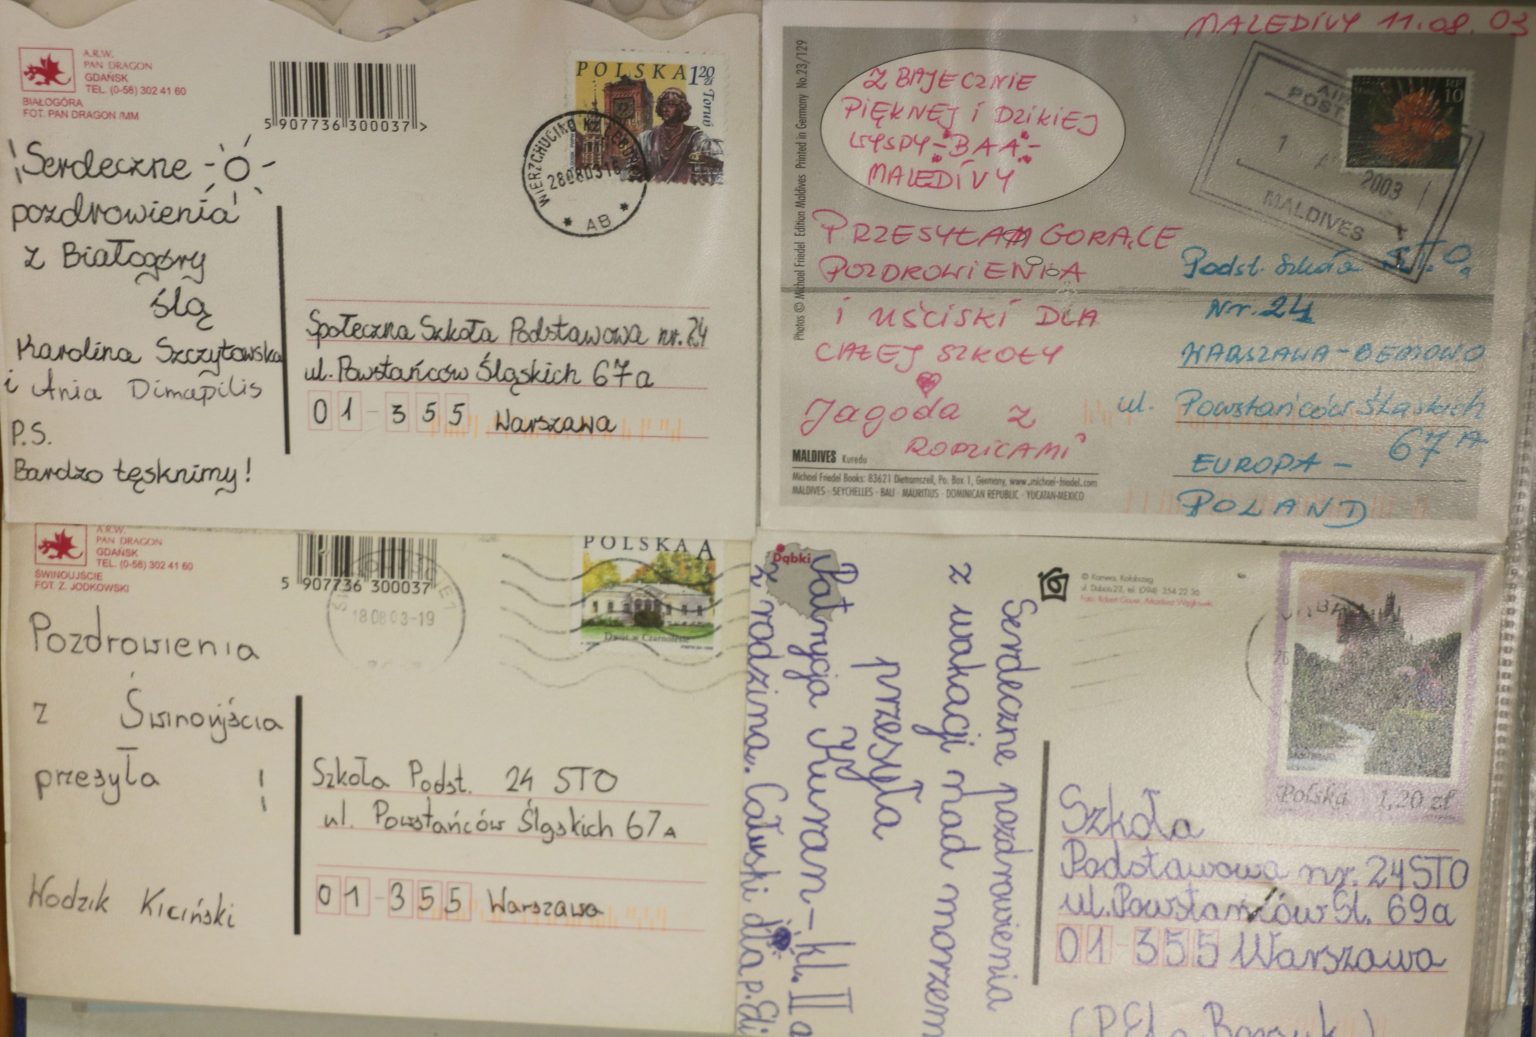 A.R.W.
PAN DRAGON
GDAŃSK
TEL. (0-58) 302 41 60
BIAŁOGÓRA
FOT. PAN DRAGON /MM
5 907736 300037 >
POLSKA 1,20 zł
Toruń
WIERZCHUCINO K.
280803 16
* AB *
Serdeczne
pozdrowienia
z Białogóry
ślą
Karolina Szczytowska
i Ania Dimapilis
P.S.
Bardzo tęsknimy!
Społeczna Szkoła Podstawowa nr. 24
ul. Powstańców Śląskich 67a
01-355 Warszawa
MALEDIVY 11.08.03
Photos © Michael Friedel Edition Maldives Printed in Germany No.23/129
Z BAJECZNIE
PIĘKNEJ I DZIKIEJ
WYSPY - BAA -
MALEDIVY
PRZESYŁAM GORĄCE
POZDROWIENIA
I UŚCISKI DLA
CAŁEJ SZKOŁY
Jagoda z
RODZICAMI
10
POST
2003
MALDIVES
Podst. Szkoła S.T.O.
Nr. 24
WARSZAWA-BEMOWO
ul. Powstańców Śląskich
67A
EUROPA -
POLAND
MALDIVES Kuredu
Michael Friedel Books: 83621 Dietramszell, Po. Box 1, Germany, www.michael-friedel.com
MALDIVES · SEYCHELLES · BALI · MAURITIUS · DOMINICAN REPUBLIC · YUCATAN-MEXICO
A.R.W.
PAN DRAGON
GDAŃSK
TEL. (0-58) 302 41 60
ŚWINOUJŚCIE
FOT. Z. JODKOWSKI
5 907736 300037
POLSKA A
Dwór w Czarnolesie
18 08 03-19
Pozdrowienia
z Świnoujścia
przesyła !
Wodzik Kiciński
Szkoła Podst. 24 STO
ul. Powstańców Śląskich 67A
01-355 Warszawa
Dąbki
Serdeczne pozdrowienia
z wakacji nad morzem
przesyła
Patrycja Kuran - kl. II a
z rodziną. Całuski dla p. Eli
© Kamera, Kołobrzeg
Polska 1,20 zł
Szkoła
Podstawowa nr. 24 STO
ul. Powstańców Śl. 69a
01-355 Warszawa